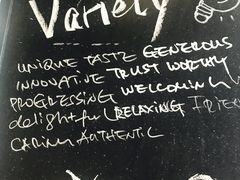 Variety
UNIQUE TASTE GENEROUS
INNOVATIVE TRUST WORTHY
PROGRESSING WELCOMING
delightful RELAXING FRIEN
CARING AUTHENTIC